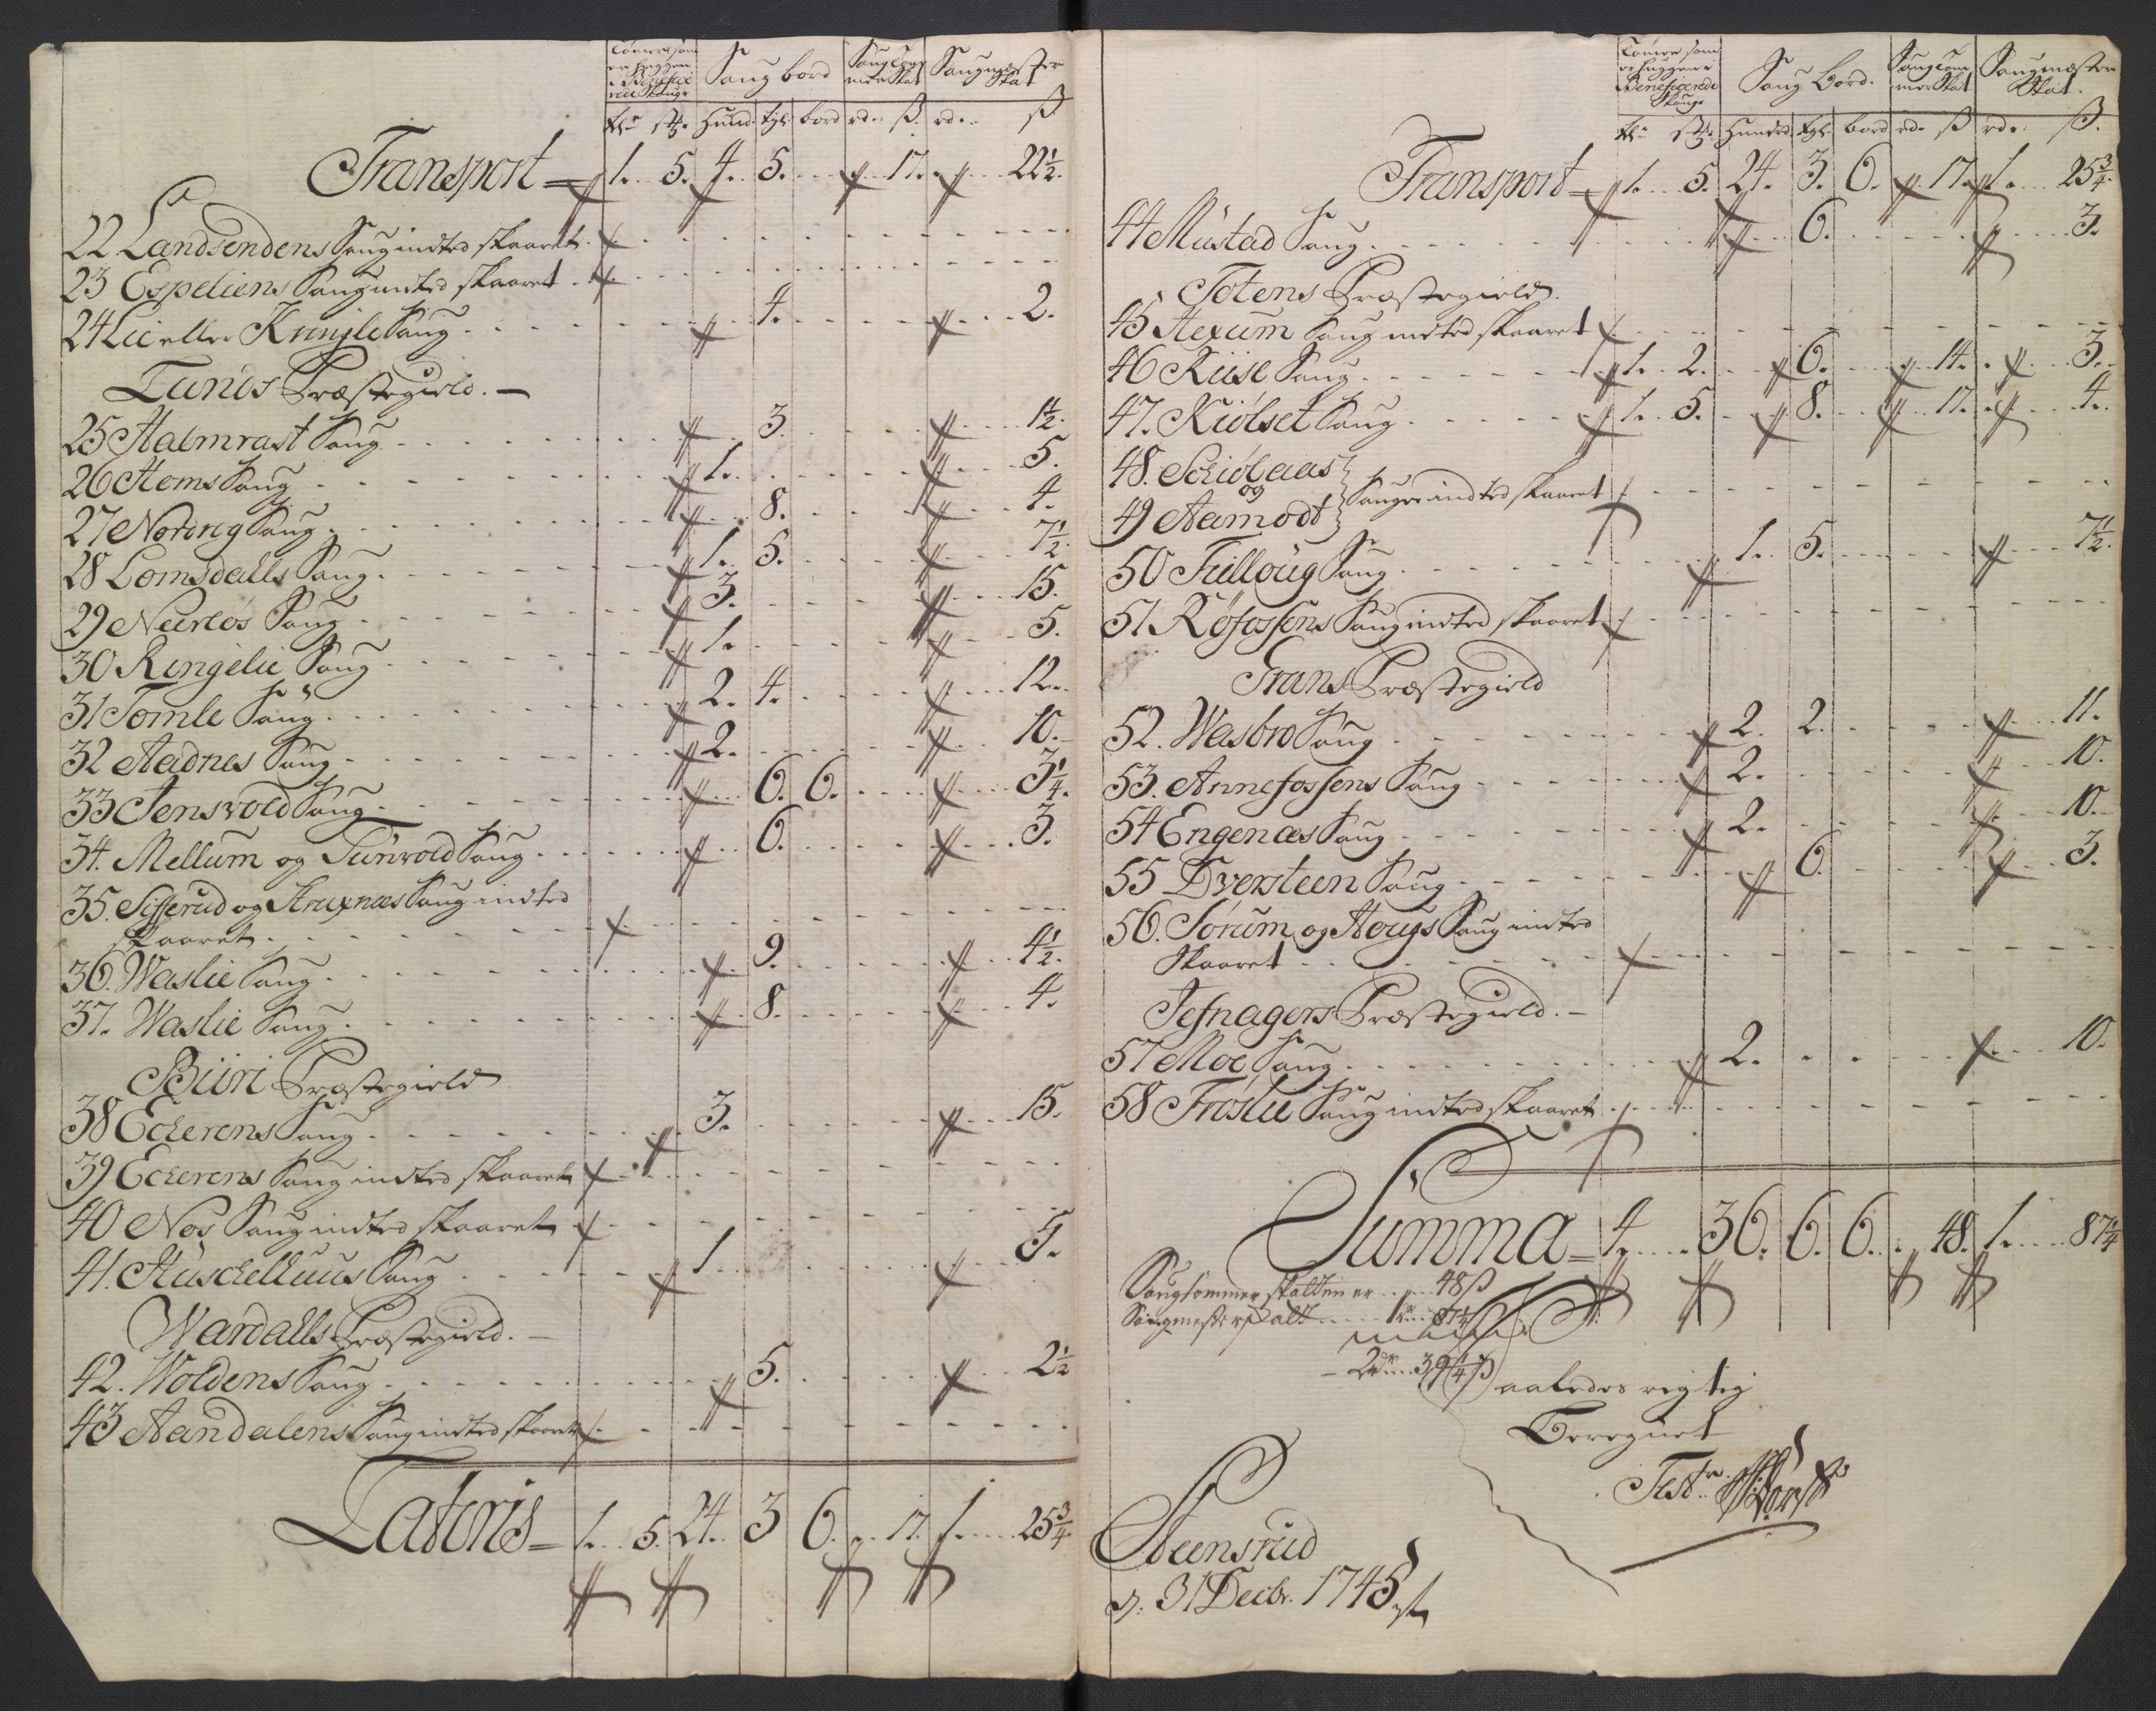 Tømer som
er huggen
i Benefice
rede Skouge
Saug bord
Saugtøm
mer Skat
Saugmæster
Skat
tlt stk. Hund. tyl. bord rd. ß. rd. ß
Transport = 1. 5. 4. 5. 17. 22½.
22 Landsendens Saug indted skaaret.
23 Espeliens Saug indted skaaret.
24 Lie eller Kringle Saug 4. 2.
Lunds Præstegield.
25 Halmrast Saug 3. 1½.
26 Homs Saug 1. 5.
27 Nordrig Saug 8. 4.
28 Lomsdalls Saug 1. 5. 7½.
29 Neerløs Saug 3. 15.
30 Ringelie Saug 1. 5.
31 Tomle Saug 2. 4. 12.
32 Aadnes Saug 2. 10.
33 Jensvold Saug 6. 6. 3¼.
34. Mellum og Sunvold Saug 6. 3.
35. Sifferud og Struxnæs Saug indted
skaaret.
36. Waslie Saug 9. 4½.
37. Waslie Saug 8. 4.
Biiri Præstegield
38 Eckerens Saug 3. 15.
39 Eckerens Saug indted skaaret
40 Nøs Saug indted skaaret
41. Huschelhuus Saug 1. 5.
Wardalls Præstegield.
42. Woldens Saug 5. 2½
43 Aandalens Saug indted skaaret
Lateris = 1. 5. 24. 3 6. 17. 1. 25¾
Tømer som
er huggen i
Beneficerede
Skouge
Saug bord.
Saugtøm
mer Skat
Saugmæster
Skat.
tlt stk. Hundred tyl. bord rd. ß rd. ß.
Transport = 1. 5. 24. 3. 6. 17. 1. 25¾.
44 Mustad Saug 6. 3.
Totens Præstegield.
45 Hexum Saug indted skaaret
46 Kiise Saug 1. 2. 6. 14. 3.
47. Kiølset Saug 1. 5. 8. 17. 4.
48. Schiølaas
og
49 Aamodt Sauger indted skaaret
50 Fulloug Saug 1. 5. 7½.
51 Røfossens Saug indted skaaret
Grans Præstegield
52. Wasbro Saug 2. 2. 11.
53. Annefossens Saug 2. 10.
54 Engenæs Saug 2. 10.
55 Dversteen Saug 6. 3.
56. Sørum og Hougs Saug indted
Skaaret
Jefnagers Præstegield.
57 Moe Saug 2. 10.
58 Frøslie Saug indted skaaret
Summa = 4. 36. 6. 6. 48. 1. 87¼
Saugtømmer skatten er 48 ß
Saugmester skatt 1 rd 87¼
2 rd 39¼ ß
Saaledes rigtig
Beregnet
Test.
Steensrud
d. 31 Decbr. 1745